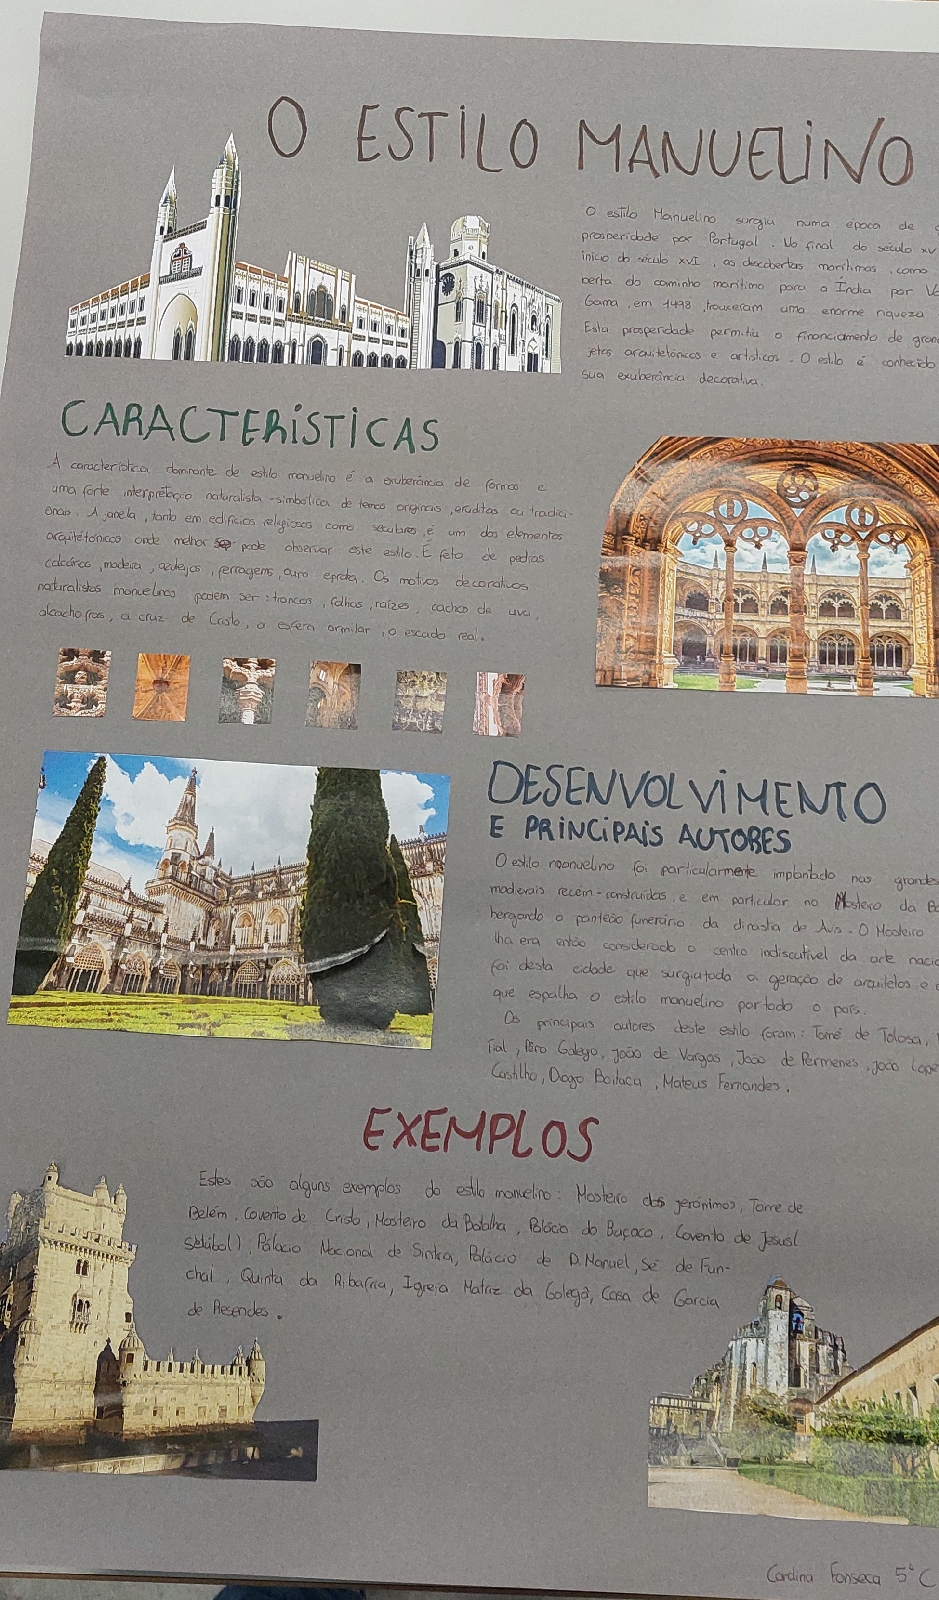 O ESTILO MANUELINO
O estilo Manuelino surgiu numa epoca de
prosperidade por Portugal. No final do século XV
início do século XVI, as descobertas marítimas, como
berta do caminho marítimo para a India por
Gama, em 1498, trouceram uma enorme riqueza
Esta prosperidade permitiu o financiamento de
jetos arquitetónicos e artísticos. O estilo é conhecido
sua exuberância decorativa.
CARACTERÍSTICAS
A característica dominante de estilo manuelino é a exuberância de formas e
uma forte interpretação naturalista-simbólica de temas originais, eruditas ou tradici-
onais. A janela, tanto em edifícios religiosos como seculares, é um dos elementos
arquitetónicos onde melhor se pode observar este estilo. É feto de pedras
calcárias, madeira, azulejos, ferragens, ouro e prata. Os motivos decorativos
naturalistas manuelinos podem ser: troncos, folhas, raízes, cachos de uva,
alcachofras, a cruz de Cristo, a esfera armilar, o escudo real.
DESENVOLVIMENTO
E PRINCIPAIS AUTORES
O estilo manuelino foi particularmente implantado nas grandes
recem-construídas, e em particular no Mosteiro da
bergando o panteão funerário da dinastia de Avis. O Mosteiro
lha era então considerado o centro indiscutível da arte
foi desta cidade que surgiu toda a geração de arquitetos e
que espalha o estilo manuelino por todo o país.
Os principais autores deste estilo foram: Tomé de Tolosa,
Fial, Pêro Galego, João de Vargas, João de Permenes, João
Castilho, Diogo Boitaca, Mateus Fernandes.
EXEMPLOS
Estes são alguns exemplos do estilo manuelino: Mosteiro dos jerónimos, Torre de
Belém, Covento de Cristo, Mosteiro da Batalha, Palácio do Buçaco, Covento de Jesus(
setúbal), Palácio Nacional de Sintra, Palácio de D. Manuel, Sé de Fun-
chal, Quinta da Ribafria, Igreja Matriz da Golegã, Casa de Garcia
de Resendes.
Fonseca 5ºC